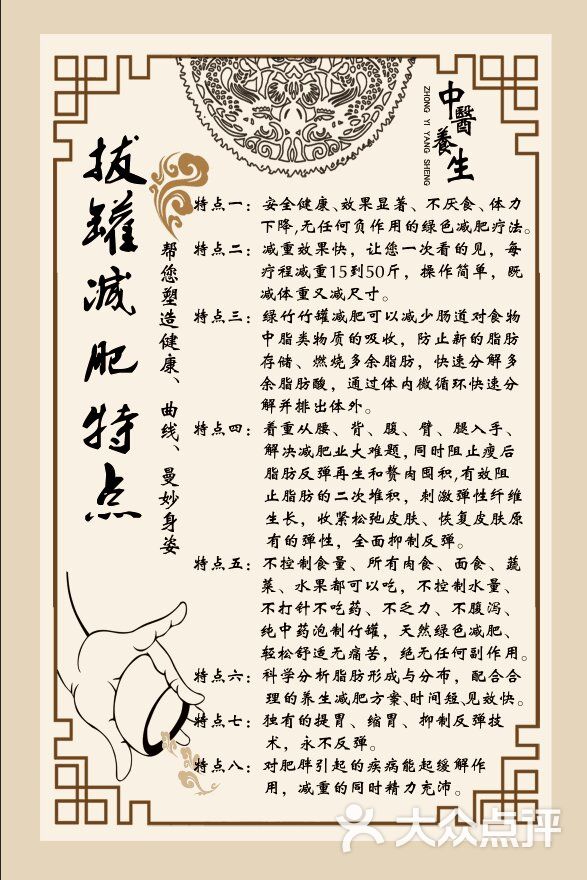 中醫養生
ZHONG YI YANG SHENG
拔罐减肥特点
帮您塑造健康、曲线、曼妙身姿
特点一：安全健康、效果显著、不厌食、体力
下降,无任何负作用的绿色减肥疗法。
特点二：减重效果快，让您一次看的见，每
疗程减重15到50斤，操作简单，既
减体重又减尺寸。
特点三：绿竹竹罐减肥可以减少肠道对食物
中脂类物质的吸收，防止新的脂肪
存储、燃烧多余脂肪，快速分解多
余脂肪酸，通过体内微循环快速分
解并排出体外。
特点四：着重从腰、背、腹、臂、腿入手、
解决减肥业大难题,同时阻止瘦后
脂肪反弹再生和赘肉囤积,有效阻
止脂肪的二次堆积，刺激弹性纤维
生长，收紧松弛皮肤、恢复皮肤原
有的弹性，全面抑制反弹。
特点五：不控制食量、所有肉食、面食、蔬
菜、水果都可以吃，不控制水量、
不打针不吃药、不乏力、不腹泻、
纯中药泡制竹罐，天然绿色减肥、
轻松舒适无痛苦，绝无任何副作用。
特点六：科学分析脂肪形成与分布，配合合
理的养生减肥方案、时间短、见效快。
特点七：独有的提胃、缩胃、抑制反弹技
术，永不反弹。
特点八：对肥胖引起的疾病能起缓解作
用，减重的同时精力充沛。
大众点评